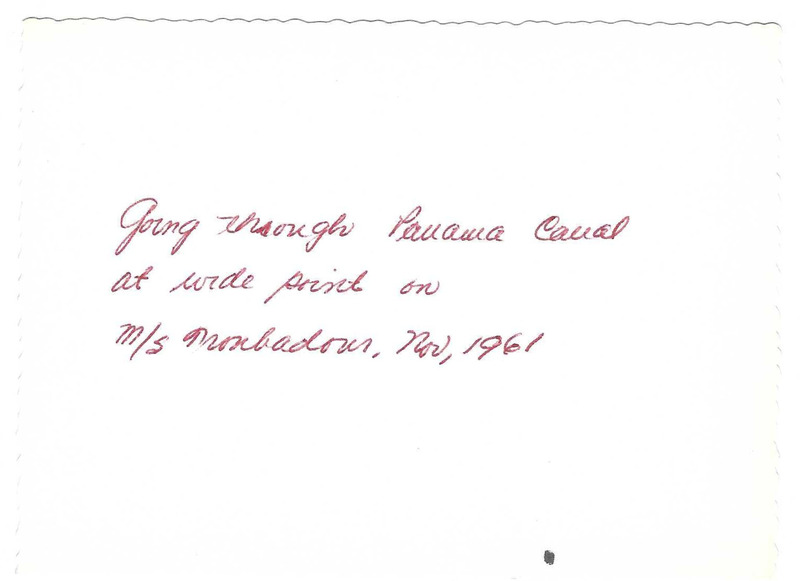 Going through Panama Canal
at wide point on
M/S Troubadour, Nov, 1961